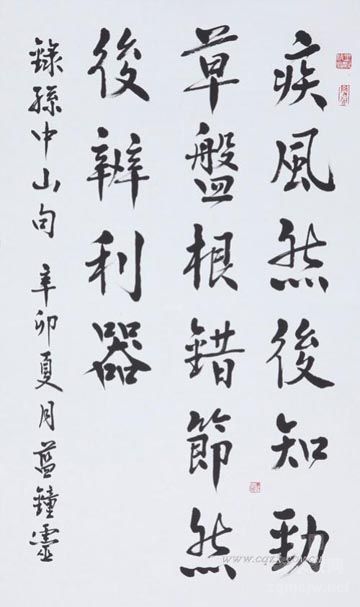 疾風然後知勁
草盤根錯節然
後辨利器
錄孫中山句 辛卯夏月 藍鐘靈